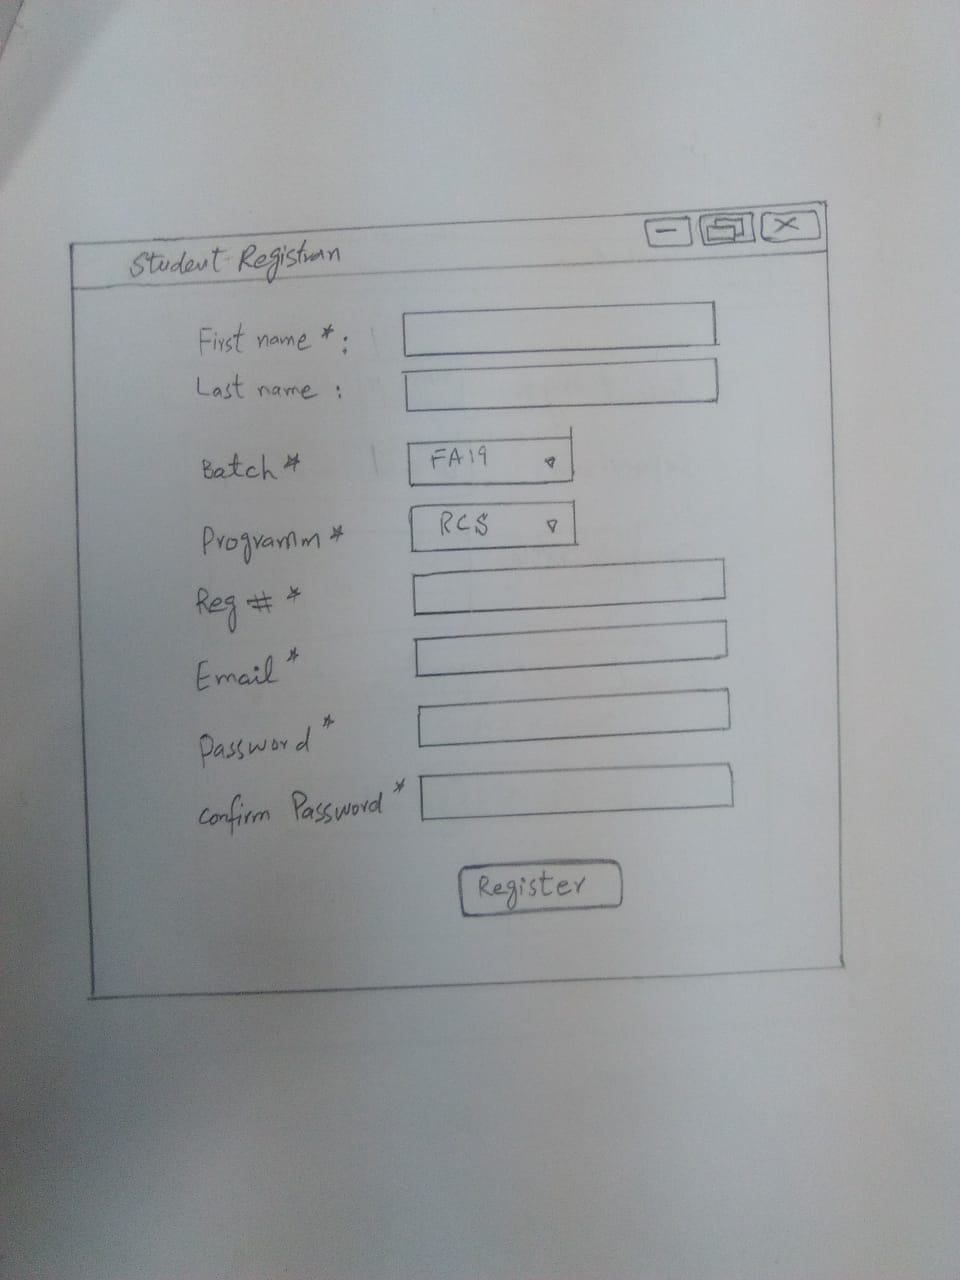 Student Registran
First name *:
Last name :
Batch *
FA19
Programm *
RCS
Reg # *
Email *
Password *
Confirm Password *
Register